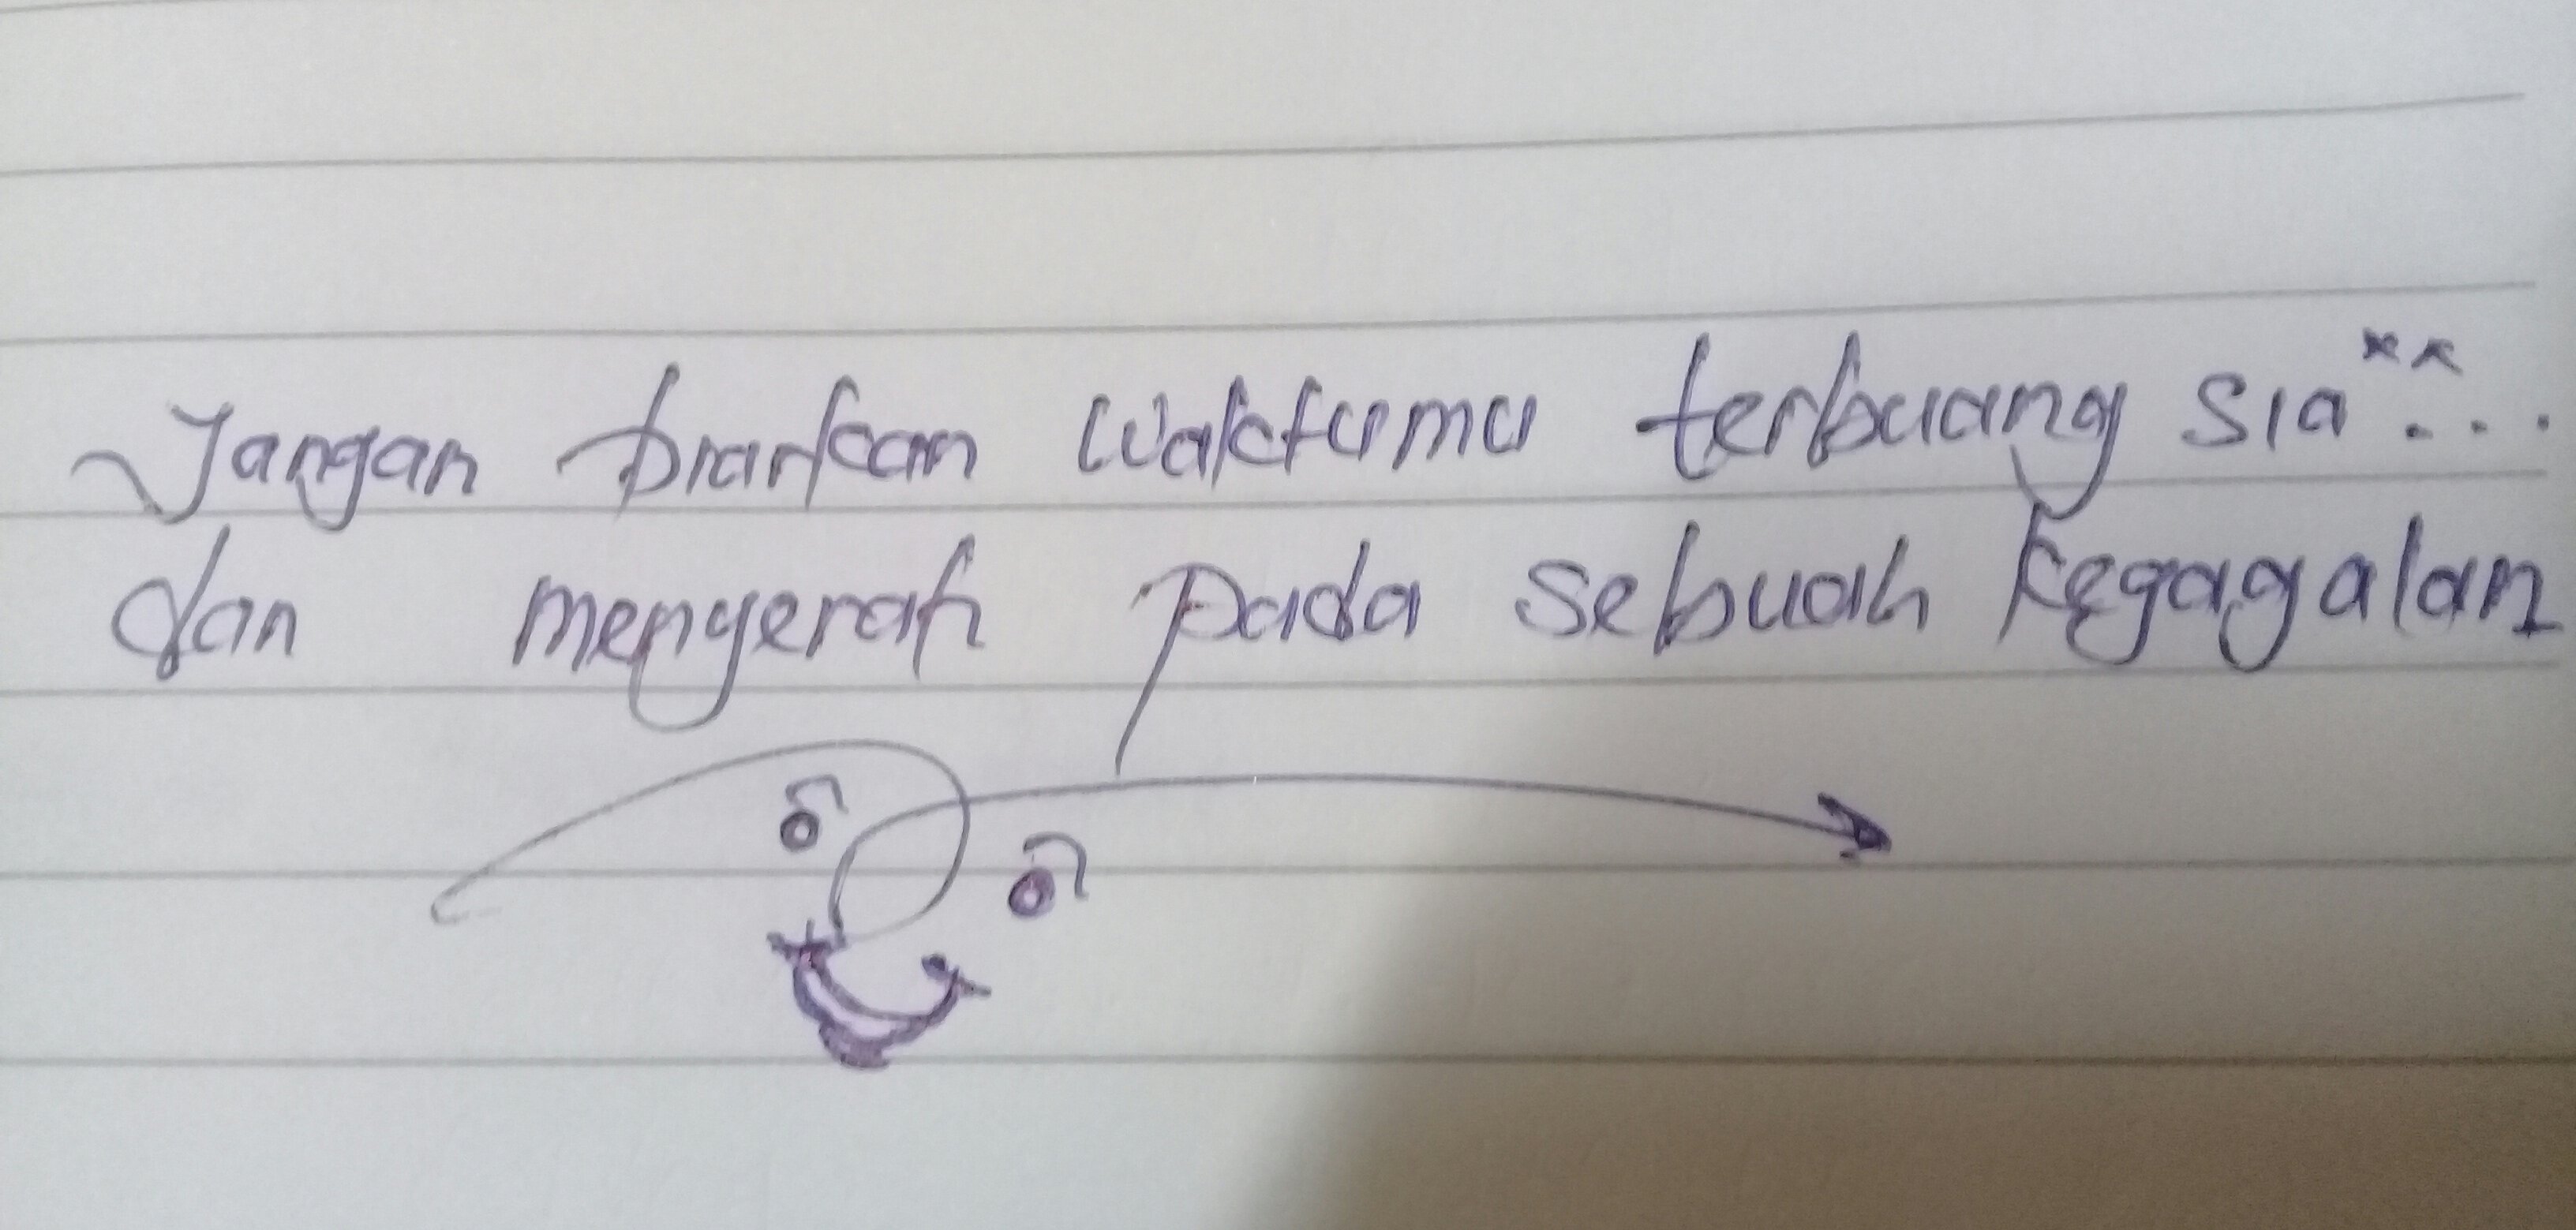 Jangan biarkan waktumu terbuang sia**...
dan menyerah pada sebuah kegagalan